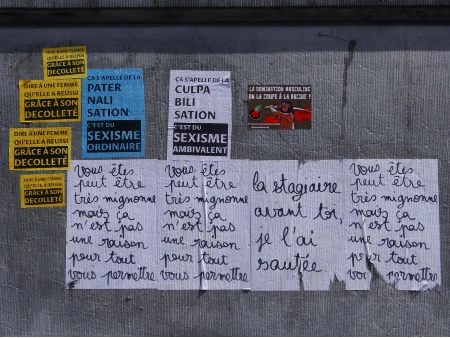 DIRE A UNE FEMME
QU'ELLE A RÉUSSI
GRÂCE A SON
DECOLLETÉ
DIRE A UNE FEMME
QU'ELLE A RÉUSSI
GRÂCE A SON
DECOLLETÉ
DIRE A UNE FEMME
QU'ELLE A RÉUSSI
GRÂCE A SON
DECOLLETÉ
DIRE A UNE FEMME
QU'ELLE A RÉUSSI
GRÂCE A SON
DECOLLETÉ
ÇA S'APELLE DE LA
PATER
NALI
SATION
C'EST DU
SEXISME
ORDINAIRE
ÇA S'APELLE DE LA
CULPA
BILI
SATION
C'EST DU
SEXISME
AMBIVALENT
LA DOMINATION MASCULINE
ON LA COUPE À LA RACINE !
Vous êtes
peut être
très mignonne
mais ça
n'est pas
une raison
pour tout
vous permettre
Vous êtes
peut être
très mignonne
mais ça
n'est pas
une raison
pour tout
vous permettre
la stagiaire
avant toi,
je l'ai
sautée
Vous êtes
peut être
très mignonne
mais ça
n'est pas
une raison
pour tout
vous permettre